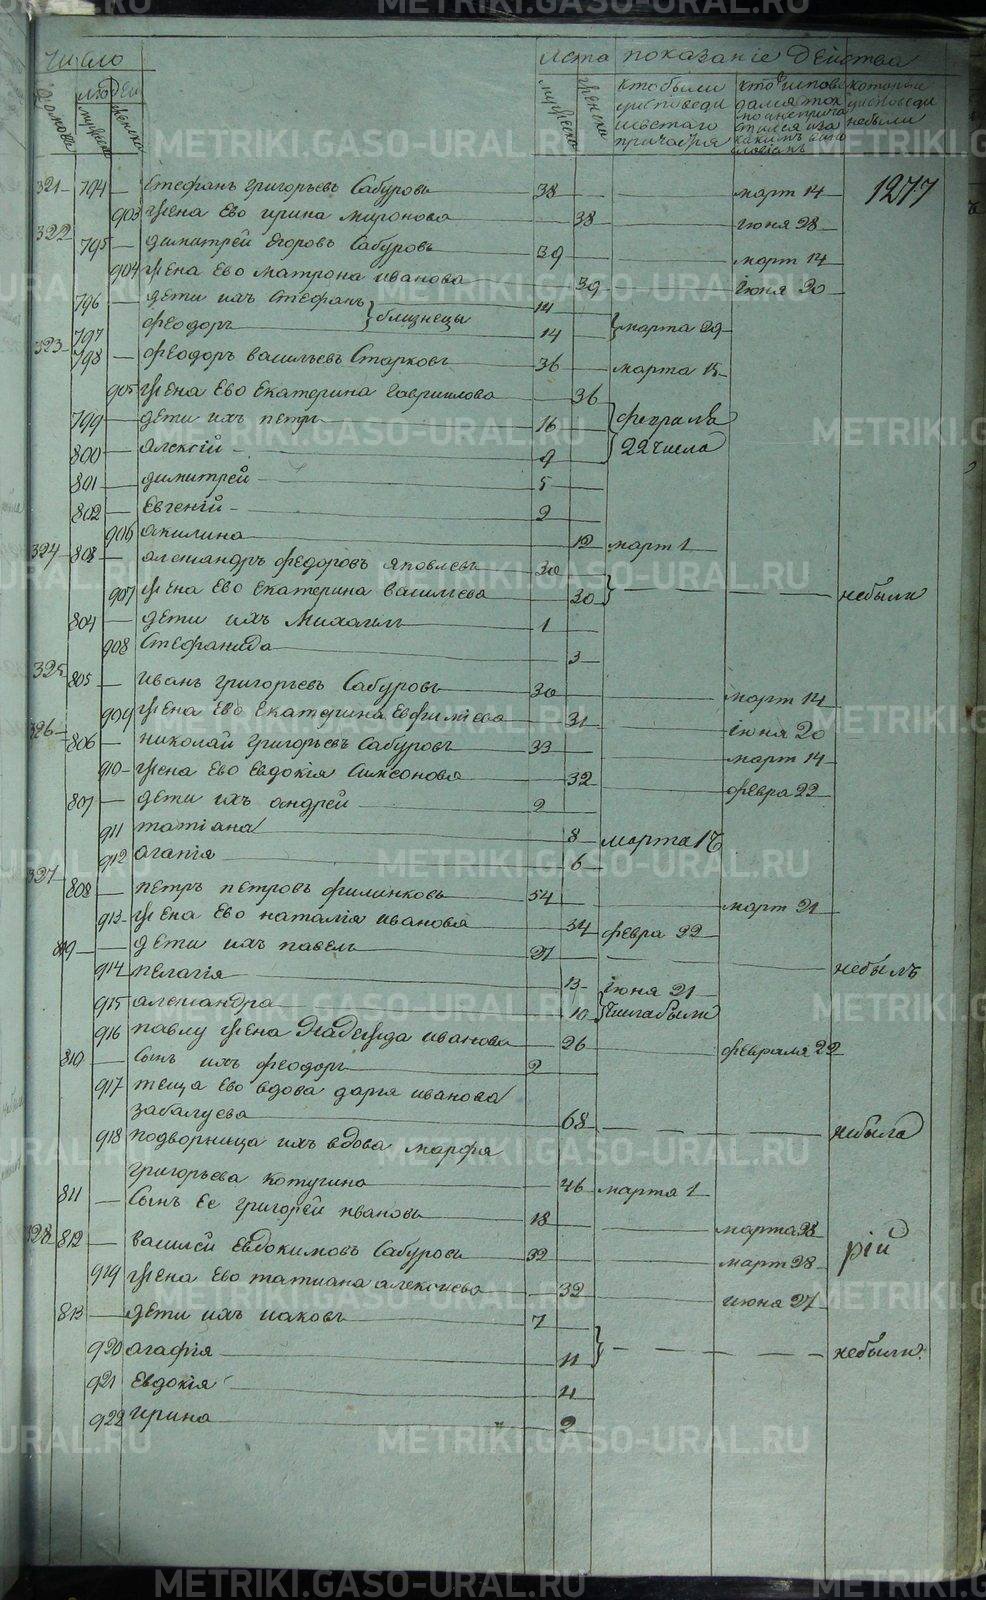 число лѣта показаніе действа
домовъ людей мужеска женска мужеска женска кто были у исповеди и святаго причастія кто исповедался токмо а не причастился и за какимъ винословіемъ которые у исповеди небыли
321 794 Стефанъ григорьевъ Сабуровъ 38 март 14 1277
903 жена Ево ирина миронова 38 июня 28
322 795 димитрей Егоровъ Сабуровъ 39 март 14
904 жена Ево матрона иванова 39 июня 20
796 дети ихъ Стефанъ 14
797 феодоръ близнецы 14 марта 29
323 798 феодоръ васильевъ Старковъ 36 марта 15
905 жена Ево Екатерина гаврилова 36
799 дети ихъ петръ 16 февраля
800 алексій 9 22 числа
801 димитрей 5
802 Евгеній 2
906 акилина 12 март 1
324 803 александръ федоровъ яковлевъ 30
907 жена Ево Екатерина васильева 30 небыли
804 дети ихъ Михаилъ 1
908 Стефанида 3
325 805 иванъ григорьевъ Сабуровъ 30 март 14
909 жена Ево Екатерина Евфиміева 31 іюня 20
326 806 николай григорьевъ Сабуровъ 33 март 14
910 жена Ево Евдокія Симеонова 32 февра 22
807 дети ихъ андрей 2
911 татіана 8 марта 15
912 агапія 6
327 808 петръ петровъ филинковъ 54 март 21
913 жена Ево наталія иванова 34 февра 22
809 дети ихъ павелъ 27 небылъ
914 пелагія 13 іюня 21
915 александра 10 числа были
916 павлу жена Надежда иванова 26 февраля 22
810 Сынъ ихъ феодоръ 2
917 теща Ево вдова дарія иванова
забалуева 68 небыла
918 подворница ихъ вдова марфа
григорьева котугина 46 марта 1
811 Сынъ Ее григорей ивановъ 18 марта 28
328 812 василей Евдокимовъ Сабуровъ 32 март 28 рій
919 жена Ево татиана алексіева 32 июня 27
813 дети ихъ иаковъ 7
920 агафія 11 небыли
921 Евдокія 4
922 ирина 2
METRIKI.GASO-URAL.RU